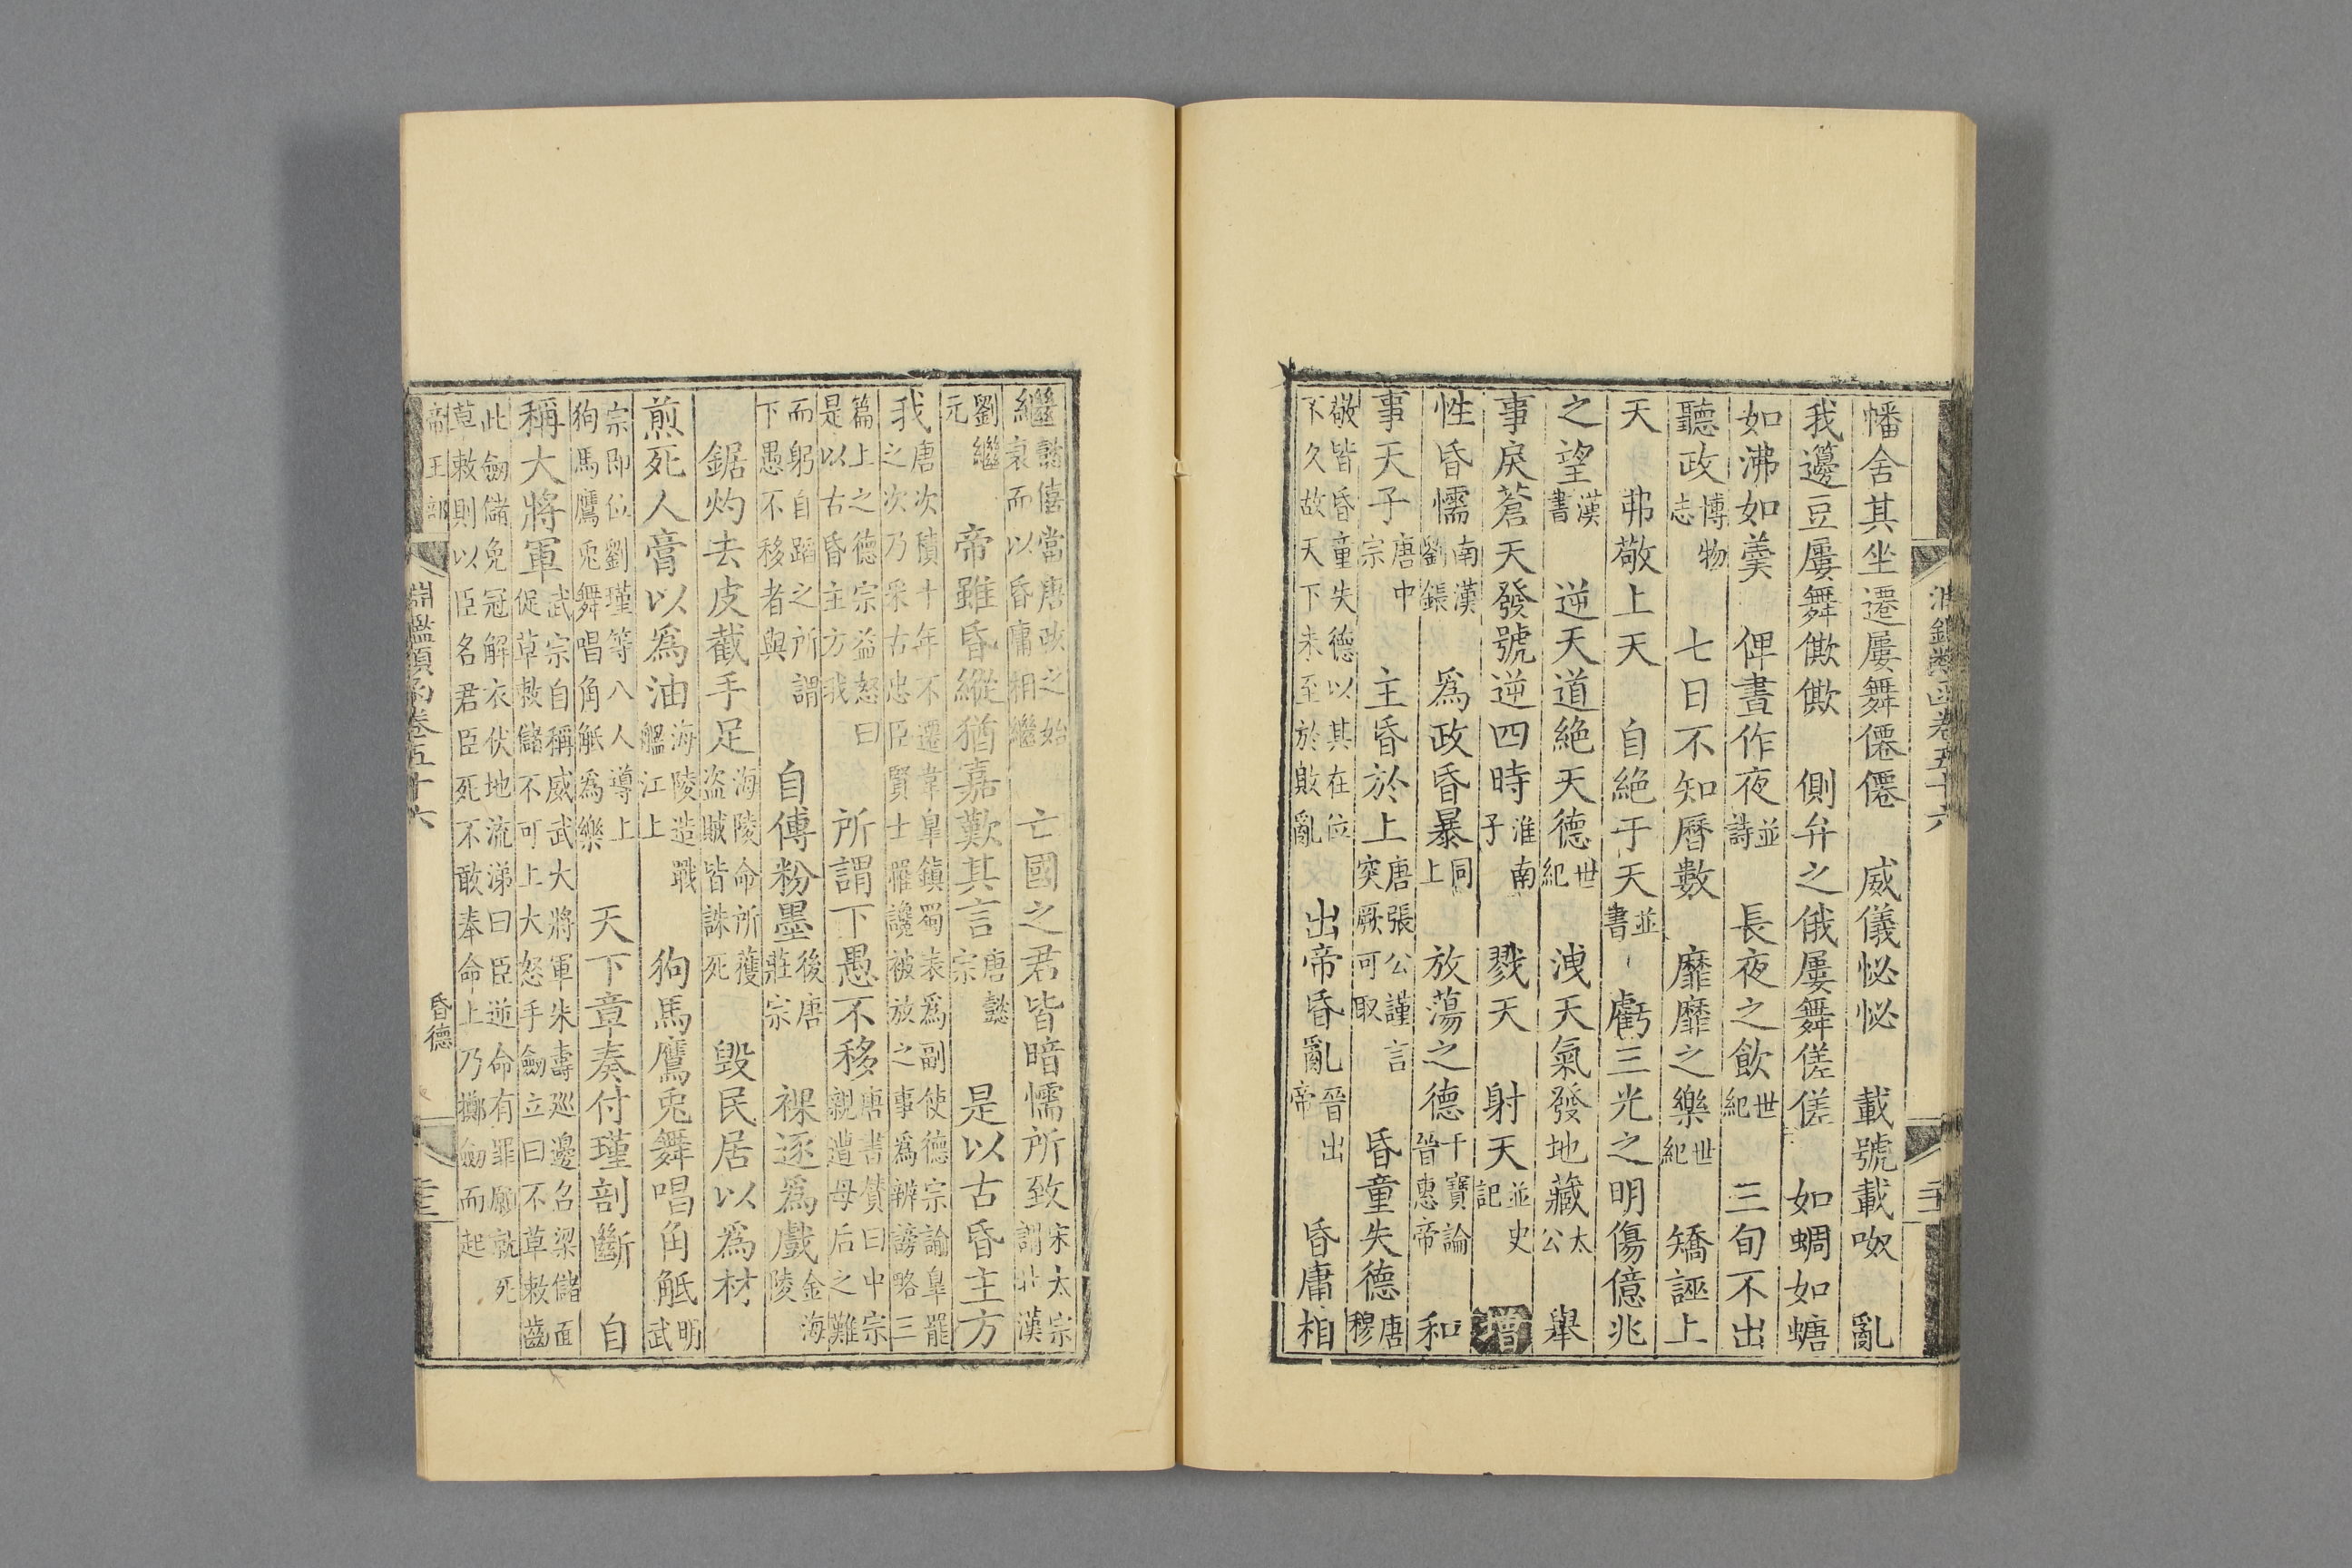 淵鑑類函卷五十六
幡舍其坐遷屢舞僊僊　威儀怭怭　載號載呶　亂
我籩豆屢舞僛僛　側弁之俄屢舞傞傞　如蜩如螗
如沸如羹　俾晝作夜並詩　長夜之飲世紀　三旬不出
聽政博物志　七日不知曆數　靡靡之樂世紀　矯誣上
天　弗敬上天　自絶于天並書　虧三光之明傷億兆
之望漢書　逆天道絶天德世紀　洩天氣發地藏太公　舉
事戾蒼天發號逆四時淮南子　戮天　射天並史記　增
性昏懦南漢劉鋹　爲政昏暴同上　放蕩之德干寶論晉惠帝　和
事天子唐中宗　主昏於上唐張公謹言突厥可取　昏童失德唐穆
敬皆昏童失德以其在位不久故天下未至於敗亂　出帝昏亂晉出帝　昏庸相
繼懿僖當唐政之始衰而以昏庸相繼　亡國之君皆暗懦所致宋太宗謂北漢
劉繼元　帝雖昏縱猶嘉歎其言唐懿宗　是以古昏主方
我唐次積十年不遷韋臯鎮蜀表爲副使德宗諭臯罷之次乃采古忠臣賢士罹讒被放之事爲辨謗略三
篇上之德宗益怒曰是以古昏主方我　所謂下愚不移唐書贊曰中宗親遭母后之難
而躬自蹈之所謂下愚不移者與　自傅粉墨後唐莊宗　裸逐爲戲金海陵
鋸灼去皮截手足海陵命所獲盗賊皆誅死　毁民居以爲材
煎死人膏以爲油海陵造戰艦江上　狗馬鷹兎舞唱角觝明武
宗即位劉瑾等八人導上狗馬鷹兎舞唱角觝爲樂　天下章奏付瑾剖斷　自
稱大將軍武宗自稱威武大將軍朱壽巡邊召梁儲面促草敕儲不可上大怒手劒立曰不草敕齒
此劒儲免冠解衣伏地流涕曰臣逆命有罪願就死草敕則以臣名君臣死不敢奉命上乃擲劒而起
帝王部　淵鑑類函卷五十六　昏德